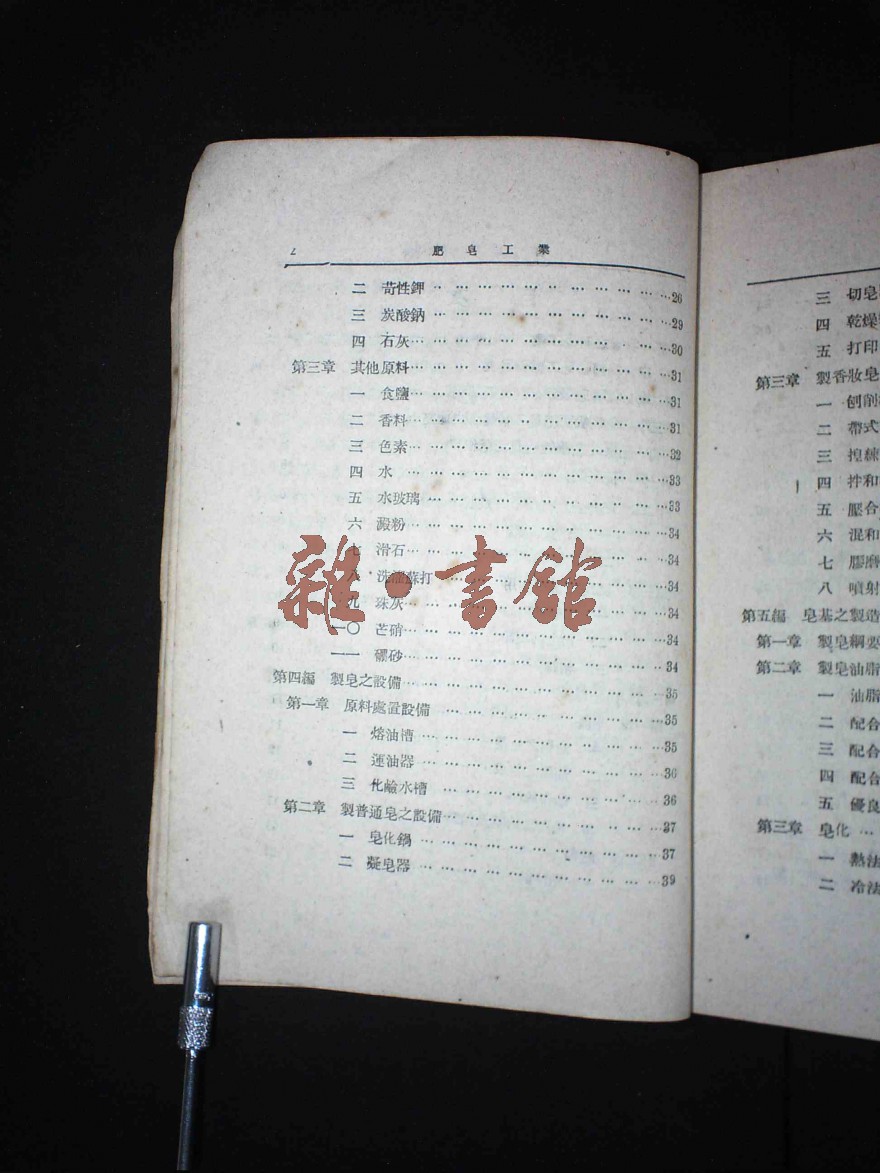 2 肥皂工業
二 苛性鉀 … 26
三 炭酸鈉 … 29
四 石灰 … 30
第三章 其他原料 … 31
一 食鹽 … 31
二 香料 … 31
三 色素 … 32
四 水 … 33
五 水玻璃 … 33
六 澱粉 … 34
七 滑石 … 34
八 洗濯蘇打 … 34
九 珠灰 … 34
一〇 芒硝 … 34
一一 硼砂 … 34
第四編 製皂之設備 … 35
第一章 原料處置設備 … 35
一 熔油槽 … 35
二 運油器 … 36
三 化鹼水槽 … 36
第二章 製普通皂之設備 … 37
一 皂化鍋 … 37
二 凝皂器 … 39
雜·書館
三 切皂
四 乾燥
五 打印
第三章 製香妝皂
一 刨削
二 帶式
三
四 拌和
五 壓合
六 混和
七 膠磨
八 噴射
第五編 皂基之製造
第一章 製皂綱要
第二章 製皂油脂
一 油脂
二 配合
三 配合
四 配合
五 優良
第三章 皂化 …
一 熱法
二 冷法